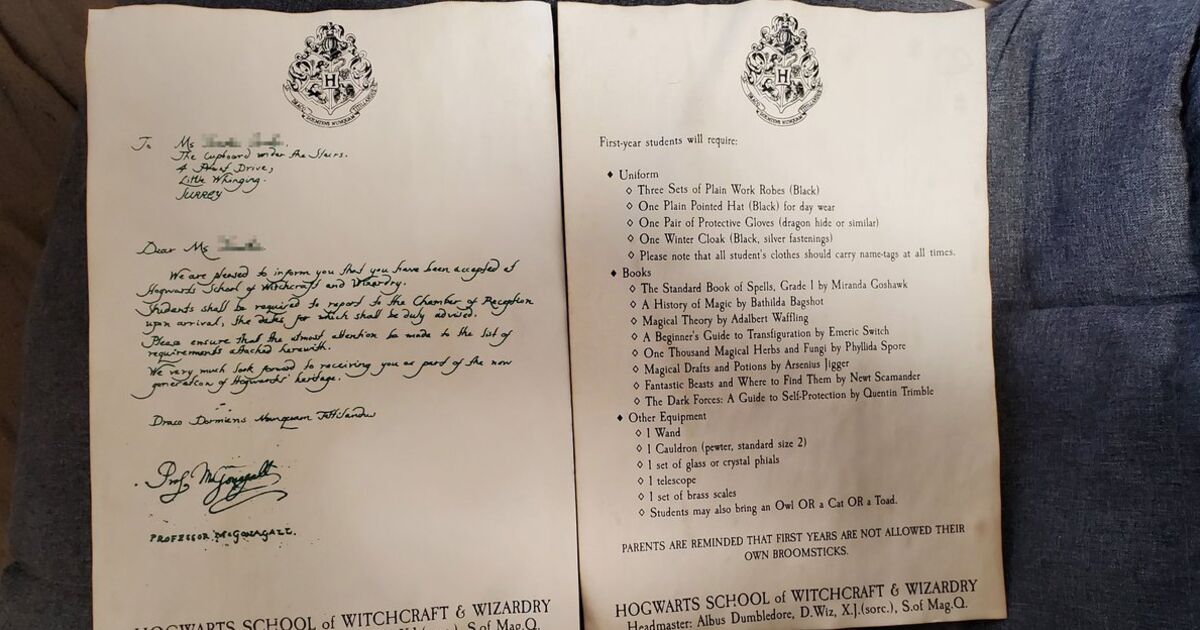 H
DRACO DORMIENS NUNQUAM TITILLANDUS
To Ms
The Cupboard under the Stairs.
4 Privet Drive,
Little Whinging.
SURREY
Dear Ms
We are pleased to inform you that you have been accepted at
Hogwarts School of Witchcraft and Wizardry.
Students shall be required to report to the Chamber of Reception
upon arrival, the dates for which shall be duly advised.
Please ensure that the utmost attention be made to the list of
requirements attached herewith.
We very much look forward to receiving you as part of the new
generation of Hogwarts' heritage.
Draco Dormiens Nunquam Titillandus
Prof McGonagall
PROFESSOR McGONAGALL.
HOGWARTS SCHOOL of WITCHCRAFT & WIZARDRY
S.of Mag.Q.
H
DRACO DORMIENS NUNQUAM TITILLANDUS
First-year students will require:
♦ Uniform
◊ Three Sets of Plain Work Robes (Black)
◊ One Plain Pointed Hat (Black) for day wear
◊ One Pair of Protective Gloves (dragon hide or similar)
◊ One Winter Cloak (Black, silver fastenings)
◊ Please note that all student's clothes should carry name-tags at all times.
♦ Books
◊ The Standard Book of Spells, Grade 1 by Miranda Goshawk
◊ A History of Magic by Bathilda Bagshot
◊ Magical Theory by Adalbert Waffling
◊ A Beginner's Guide to Transfiguration by Emeric Switch
◊ One Thousand Magical Herbs and Fungi by Phyllida Spore
◊ Magical Drafts and Potions by Arsenius Jigger
◊ Fantastic Beasts and Where to Find Them by Newt Scamander
◊ The Dark Forces: A Guide to Self-Protection by Quentin Trimble
♦ Other Equipment
◊ 1 Wand
◊ 1 Cauldron (pewter, standard size 2)
◊ 1 set of glass or crystal phials
◊ 1 telescope
◊ 1 set of brass scales
◊ Students may also bring an Owl OR a Cat OR a Toad.
PARENTS ARE REMINDED THAT FIRST YEARS ARE NOT ALLOWED THEIR
OWN BROOMSTICKS.
HOGWARTS SCHOOL of WITCHCRAFT & WIZARDRY
Headmaster: Albus Dumbledore, D.Wiz, X.J.(sorc.), S.of Mag.Q.